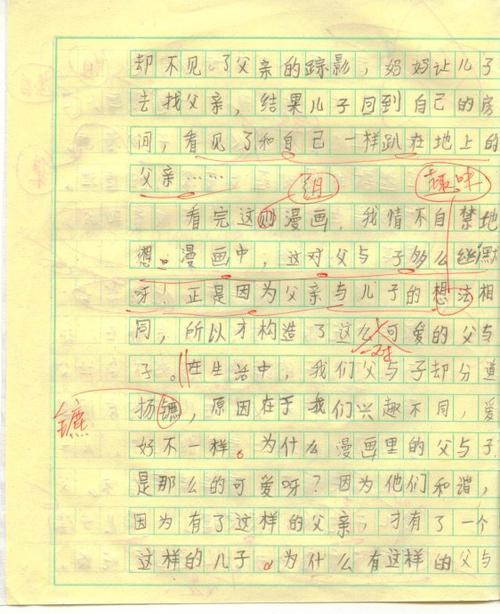 却不见了父亲的踪影，妈妈让儿子
去找父亲，结果儿子回到自己的房
间，看见了和自己一样趴在地上的
父亲……
组
趣味
看完这漫画，我情不自禁地
想：漫画中，这对父与子多么幽默
呀！正是因为父亲与儿子的想法相
同，所以才构造了这么可爱的父与
一对
子。在生活中，我们父与子却分道
扬镳，原因在于我们兴趣不同，爱
镳
好不一样。为什么漫画里的父与子
是那么的可爱呀？因为他们和谐，
因为有了这样的父亲，才有了一个
这样的儿子。为什么有这样的父与